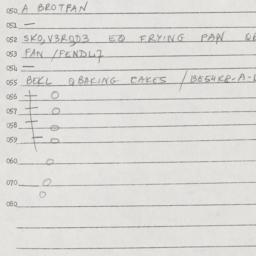 050 A BROTPAN
051 —
052 SKO,V3RD3 EQ FRYING PAN
053 PAN /
054 —
055 BEKL QBAKING CAKES /
056
057
058
059
060
070
080